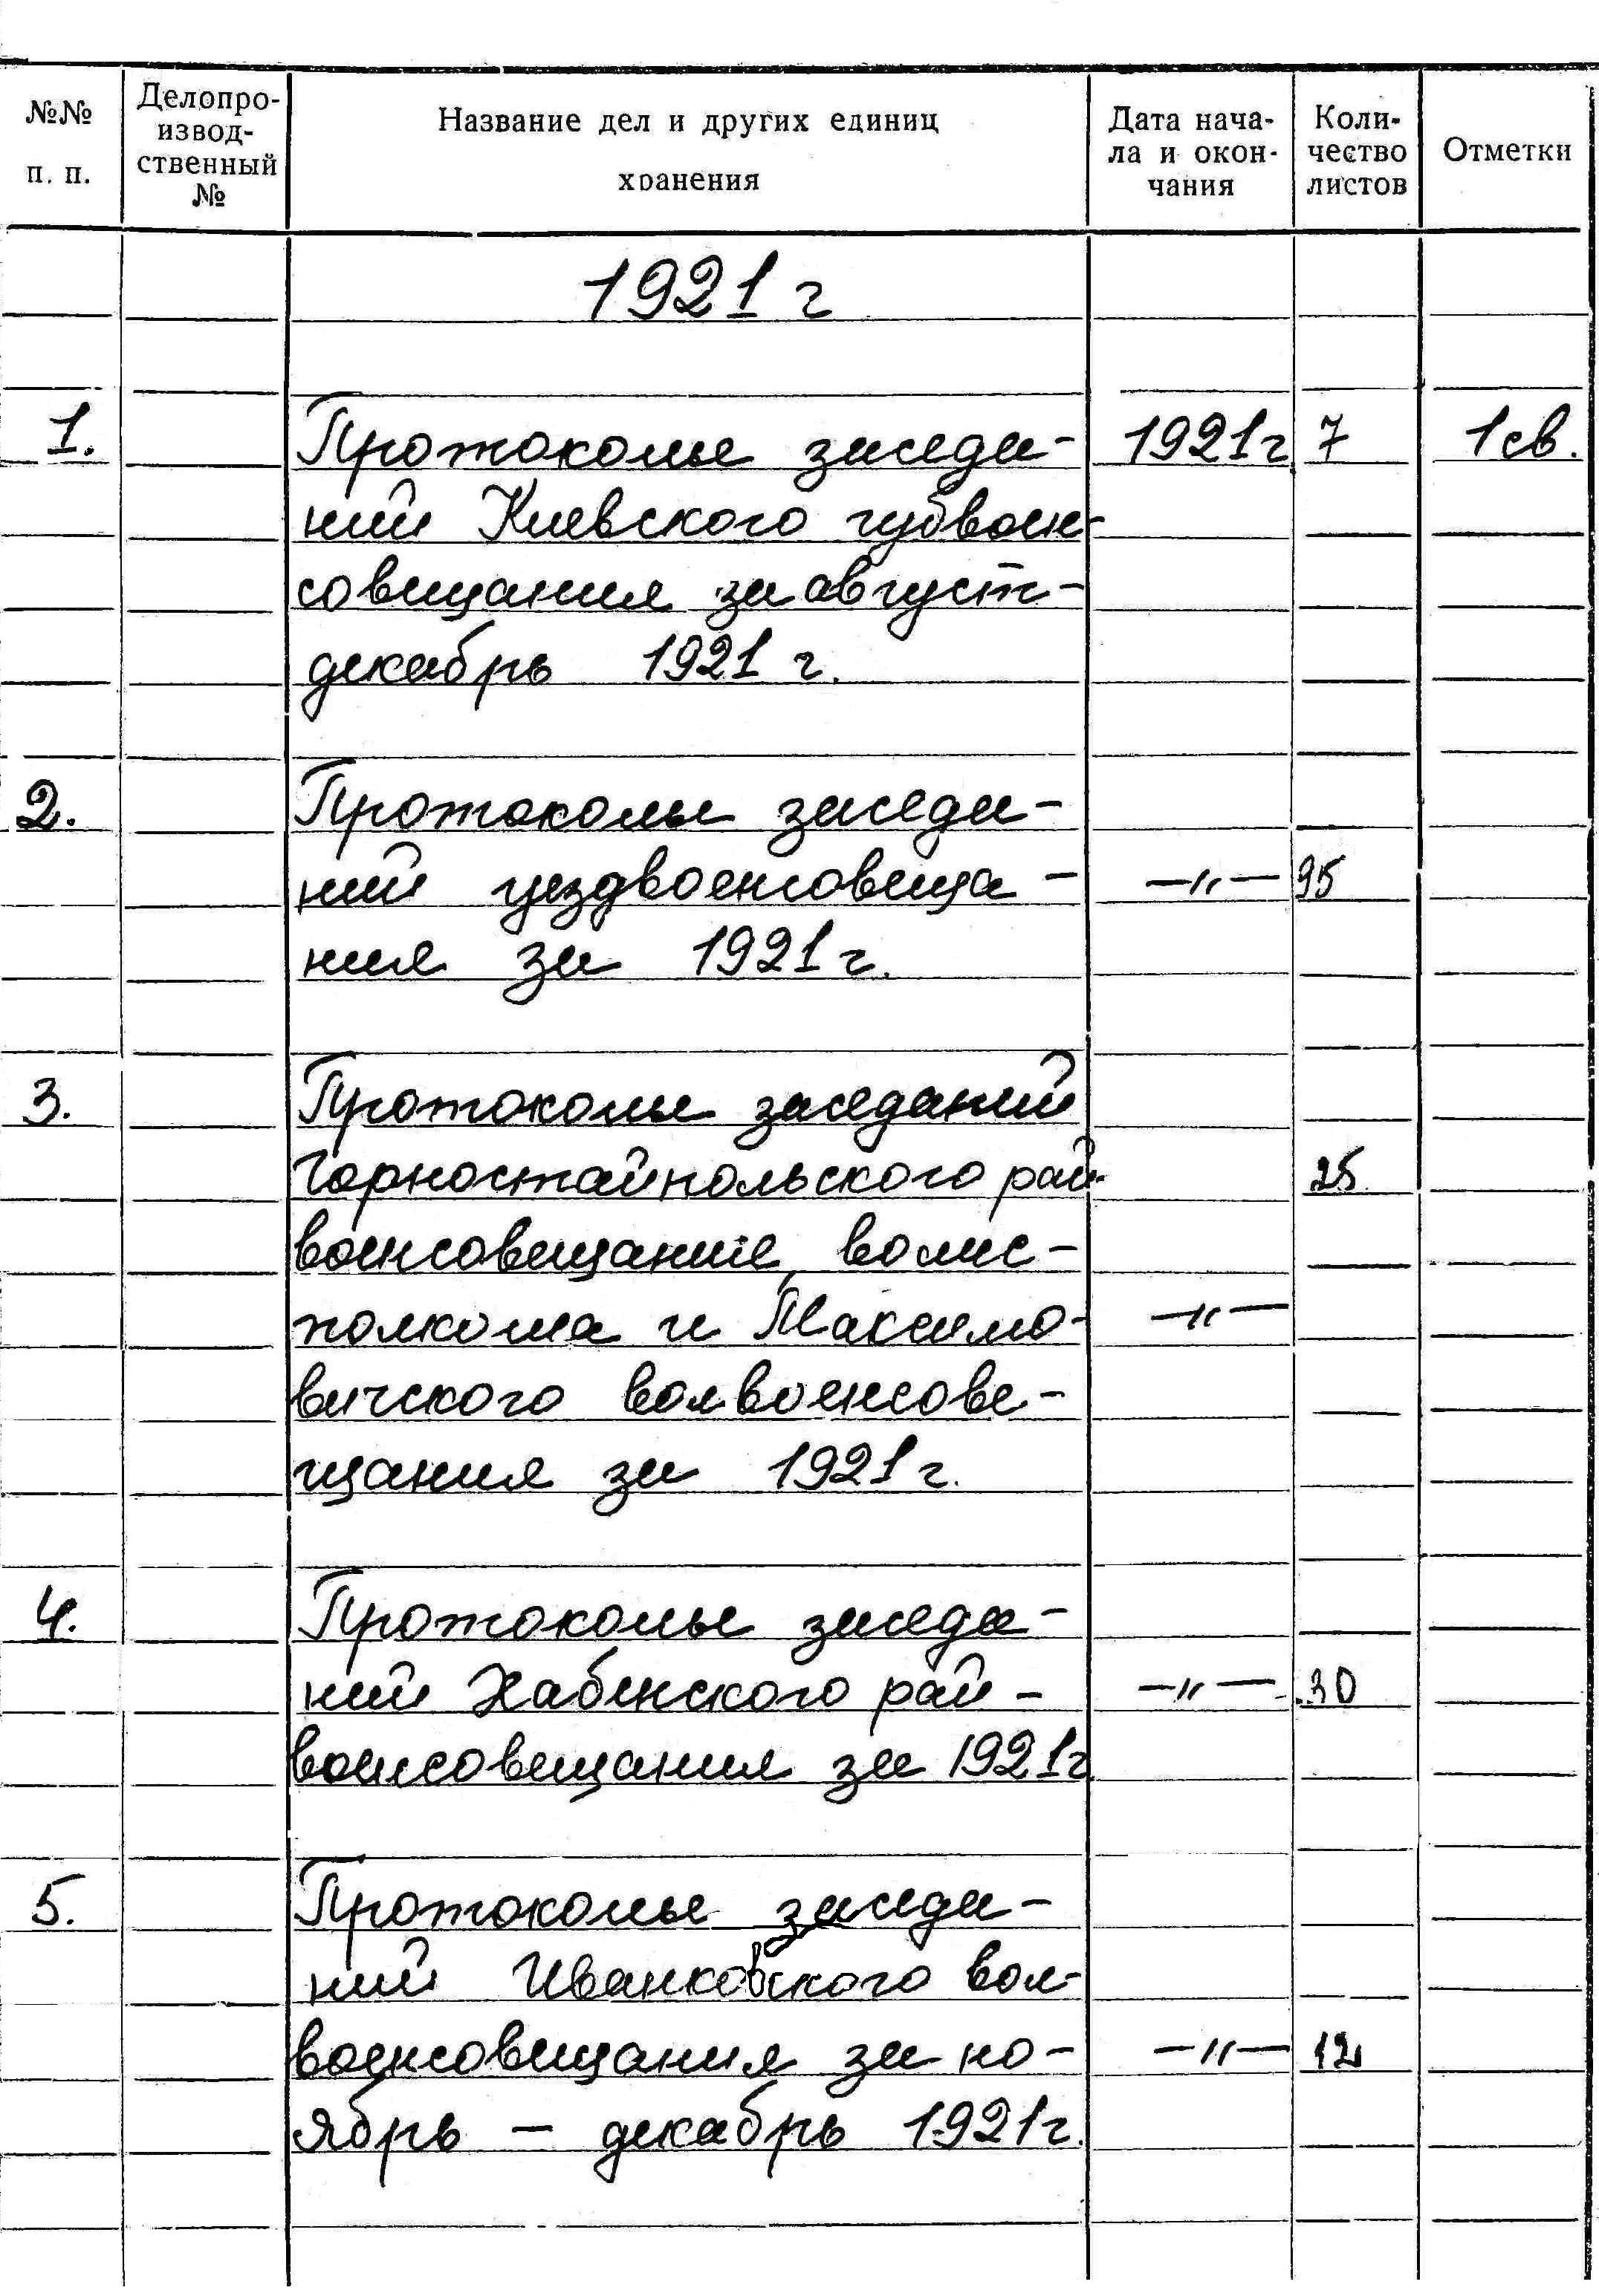 №№ п. п.
Делопро-
извод-
ственный
№
Название дел и других единиц
хранения
Дата нача-
ла и окон-
чания
Коли-
чество
листов
Отметки
1921 г
1. Протоколы заседа- 1921 г 7 1 св.
ний Киевского губвоен-
совещания за август-
декабрь 1921 г.
2. Протоколы заседа-
ний уездвоенсовеща- —"— 95
ния за 1921 г.
3. Протоколы заседаний
Горностайпольского рай- 25
военсовещание, волис-
полкома и Максимо- —"—
вичского волвоенсове-
щания за 1921 г.
4. Протоколы заседа-
ний Хабенского рай- —"— 30
военсовещания за 1921г.
5. Протоколы заседа-
ний Иванковского вол-
военсовещания за но- —"— 12
ябрь — декабрь 1921г.